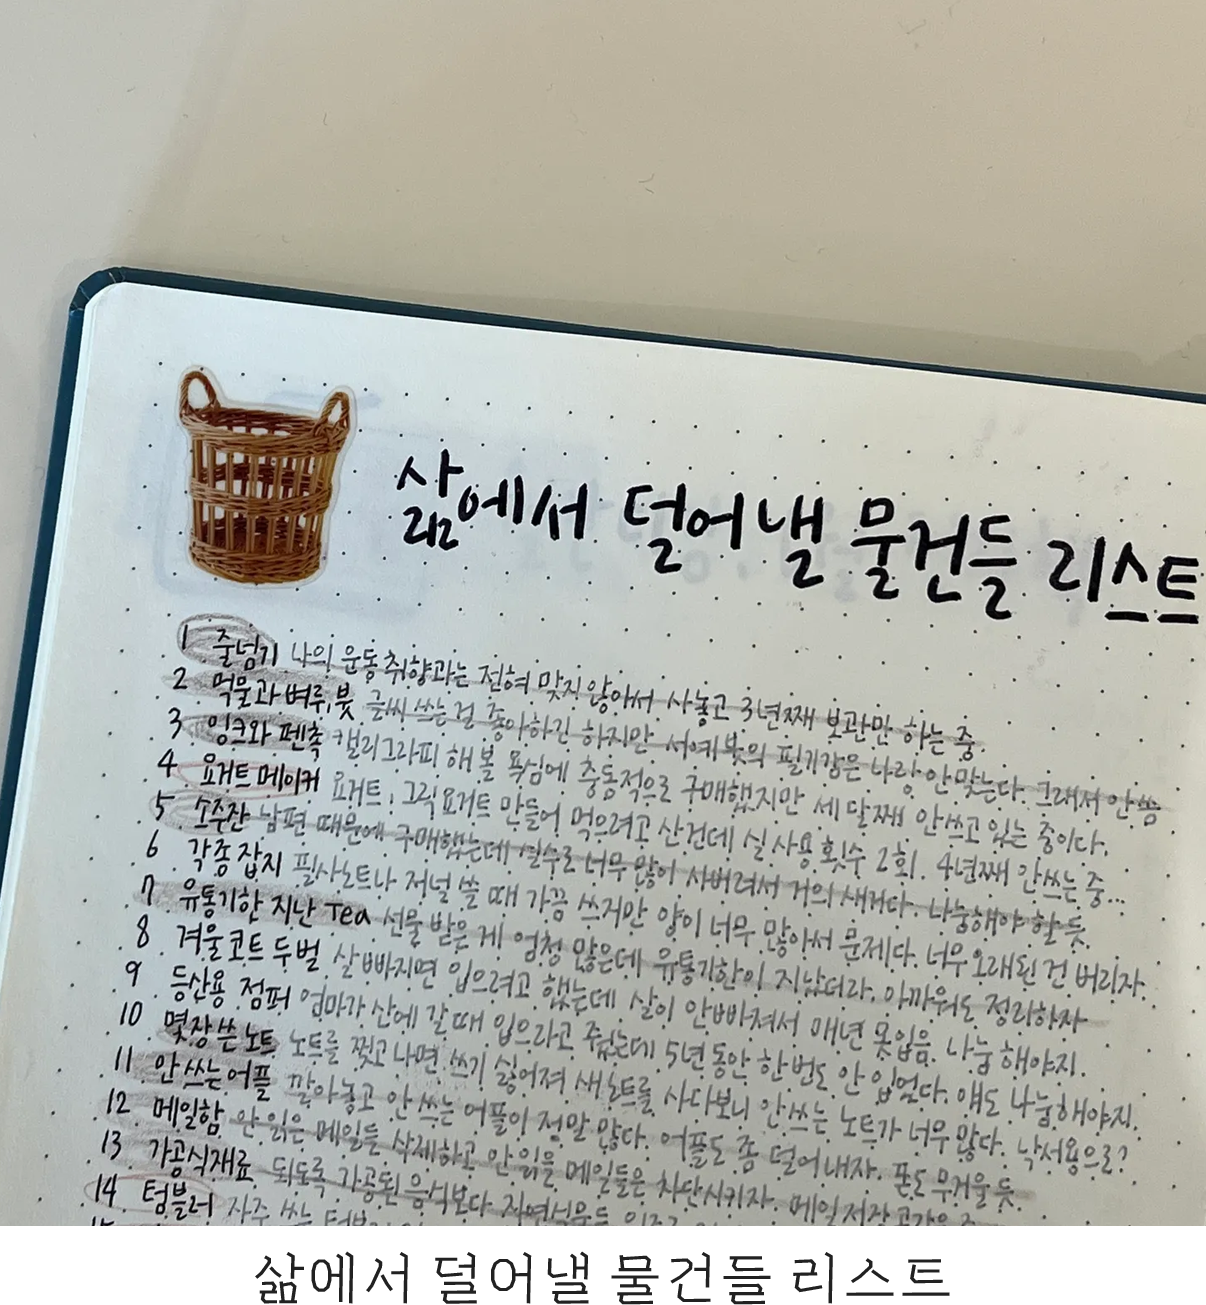 삶에서 덜어낼 물건들 리스트
1 줄넘기 나의 운동 취향과는 전혀 맞지 않아서 사놓고 3년째 보관만 하는 중.
2 먹물과 벼루, 붓 글씨 쓰는 걸 좋아하긴 하지만 서예 붓의 필기감은 나랑 안 맞는다. 그래서 안 씀
3 잉크와 펜촉 캘리그라피 해 볼 욕심에 충동적으로 구매했지만 세 달째 안 쓰고 있는 중이다.
4 요거트 메이커 요거트, 그릭요거트 만들어 먹으려고 산건데 실 사용 횟수 2회. 4년째 안쓰는 중...
5 소주잔 남편 때문에 구매했는데 실수로 너무 많이 사버려서 거의 새거다. 나눔해야 할 듯.
6 각종 잡지 필사노트나 저널 쓸 때 가끔 쓰지만 양이 너무 많아서 문제다. 너무 오래된 건 버리자.
7 유통기한 지난 Tea 선물 받은 게 엄청 많은데 유통기한이 지났더라. 아까워도 정리하자
8 겨울 코트 두벌 살 빠지면 입으려고 했는데 살이 안 빠져서 매년 못입음. 나눔 해야지.
9 등산용 점퍼 엄마가 산에 갈 때 입으라고 줬는데 5년 동안 한 번도 안 입었다. 얘도 나눔해야지.
10 몇 장 쓴 노트 노트를 찢고 나면 쓰기 싫어져 새 노트를 사다보니 안 쓰는 노트가 너무 많다. 낙서용으로?
11 안 쓰는 어플 깔아놓고 안 쓰는 어플이 정말 많다. 어플도 좀 덜어내자. 폰도 무거울 듯.
12 메일함 안 읽은 메일들 삭제하고 안 읽을 메일들은 차단시키자. 메일 저장공간을
13 가공식재료 되도록 가공된 음식보다 자연식물
14 텀블러 자주 쓰는
삶에서 덜어낼 물건들 리스트